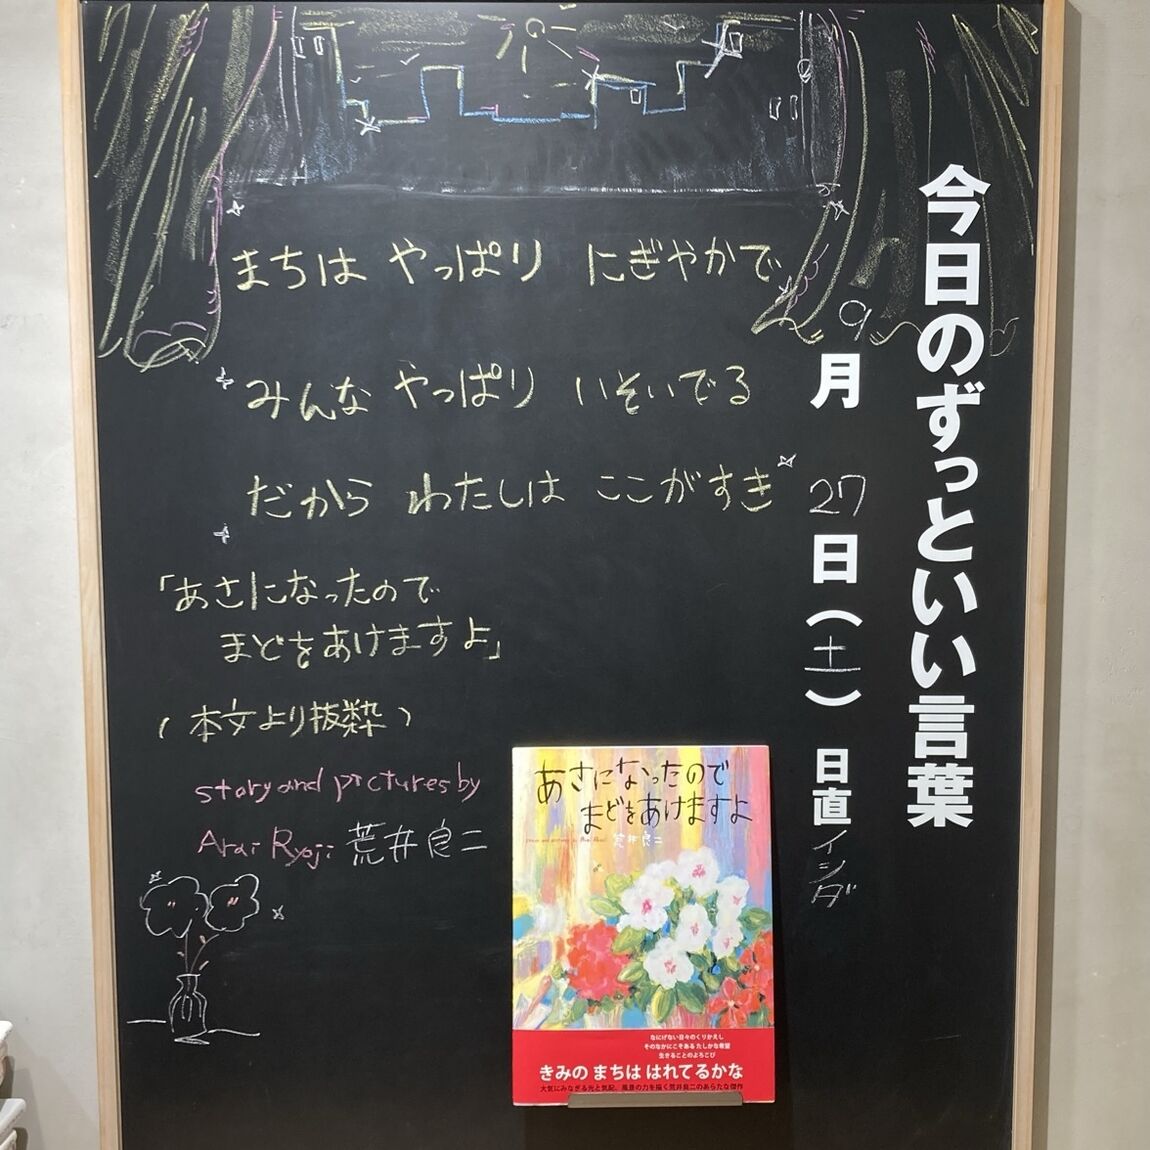 今日のずっといい言葉
9月27日(土) 日直 イシダ
まちは やっぱり にぎやかで
みんな やっぱり いそいでる
だから わたしは ここがすき
「あさになったので
まどをあけますよ」
(本文より抜粋)
story and pictures by
Arai Ryoji 荒井良二
あさになったので
まどをあけますよ
荒井良二
なにげない日々のくりかえし
そのなかにこそある たしかな希望
生きることのよろこび
きみの まちは はれてるかな
大気にみなぎる光と気配、風景の力を描く荒井良二のあらたな傑作